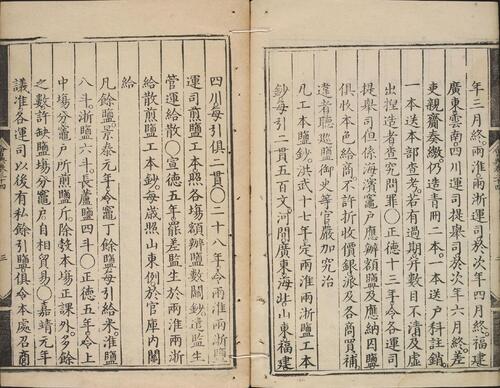 年三月終。兩淮兩浙運司於次年四月終。福建
廣東雲南四川運司提舉司於次年六月終。差
吏親齎奏繳。仍造青冊二本。一本送戶科註銷。
一本送本部查考。若有過期。斤數目不清及虛
出捏造者查究問罪〇正德十二年令各運司
提舉司但係海濱竈戶應辦額鹽及應納因鹽
俱收本色給商。不許折收價銀派及各商買補。
違者聽巡鹽御史等官嚴加究治
凡工本鹽鈔。洪武十七年定兩淮兩浙鹽工本
鈔每引二貫五百文河間廣東海北山東福建
四川每引俱二貫〇二十八年令兩淮兩浙
運司煎鹽工本照各場額辦鹽數關鈔遣監生
管運給散〇宣德五年罷差監生於兩淮兩浙
給散煎鹽工本鈔。每歲照山東例於官庫內關
給
凡餘鹽。景泰元年令竈丁餘鹽每引給米。淮鹽
八斗。浙鹽六斗。長蘆鹽四斗〇正德五年令上
中場分竈戶所煎鹽斤除穀本場正課外。多餘
之數許缺鹽場分竈戶自相貿易〇嘉靖元年
議准各運司以後有私餘引鹽俱令本處召商